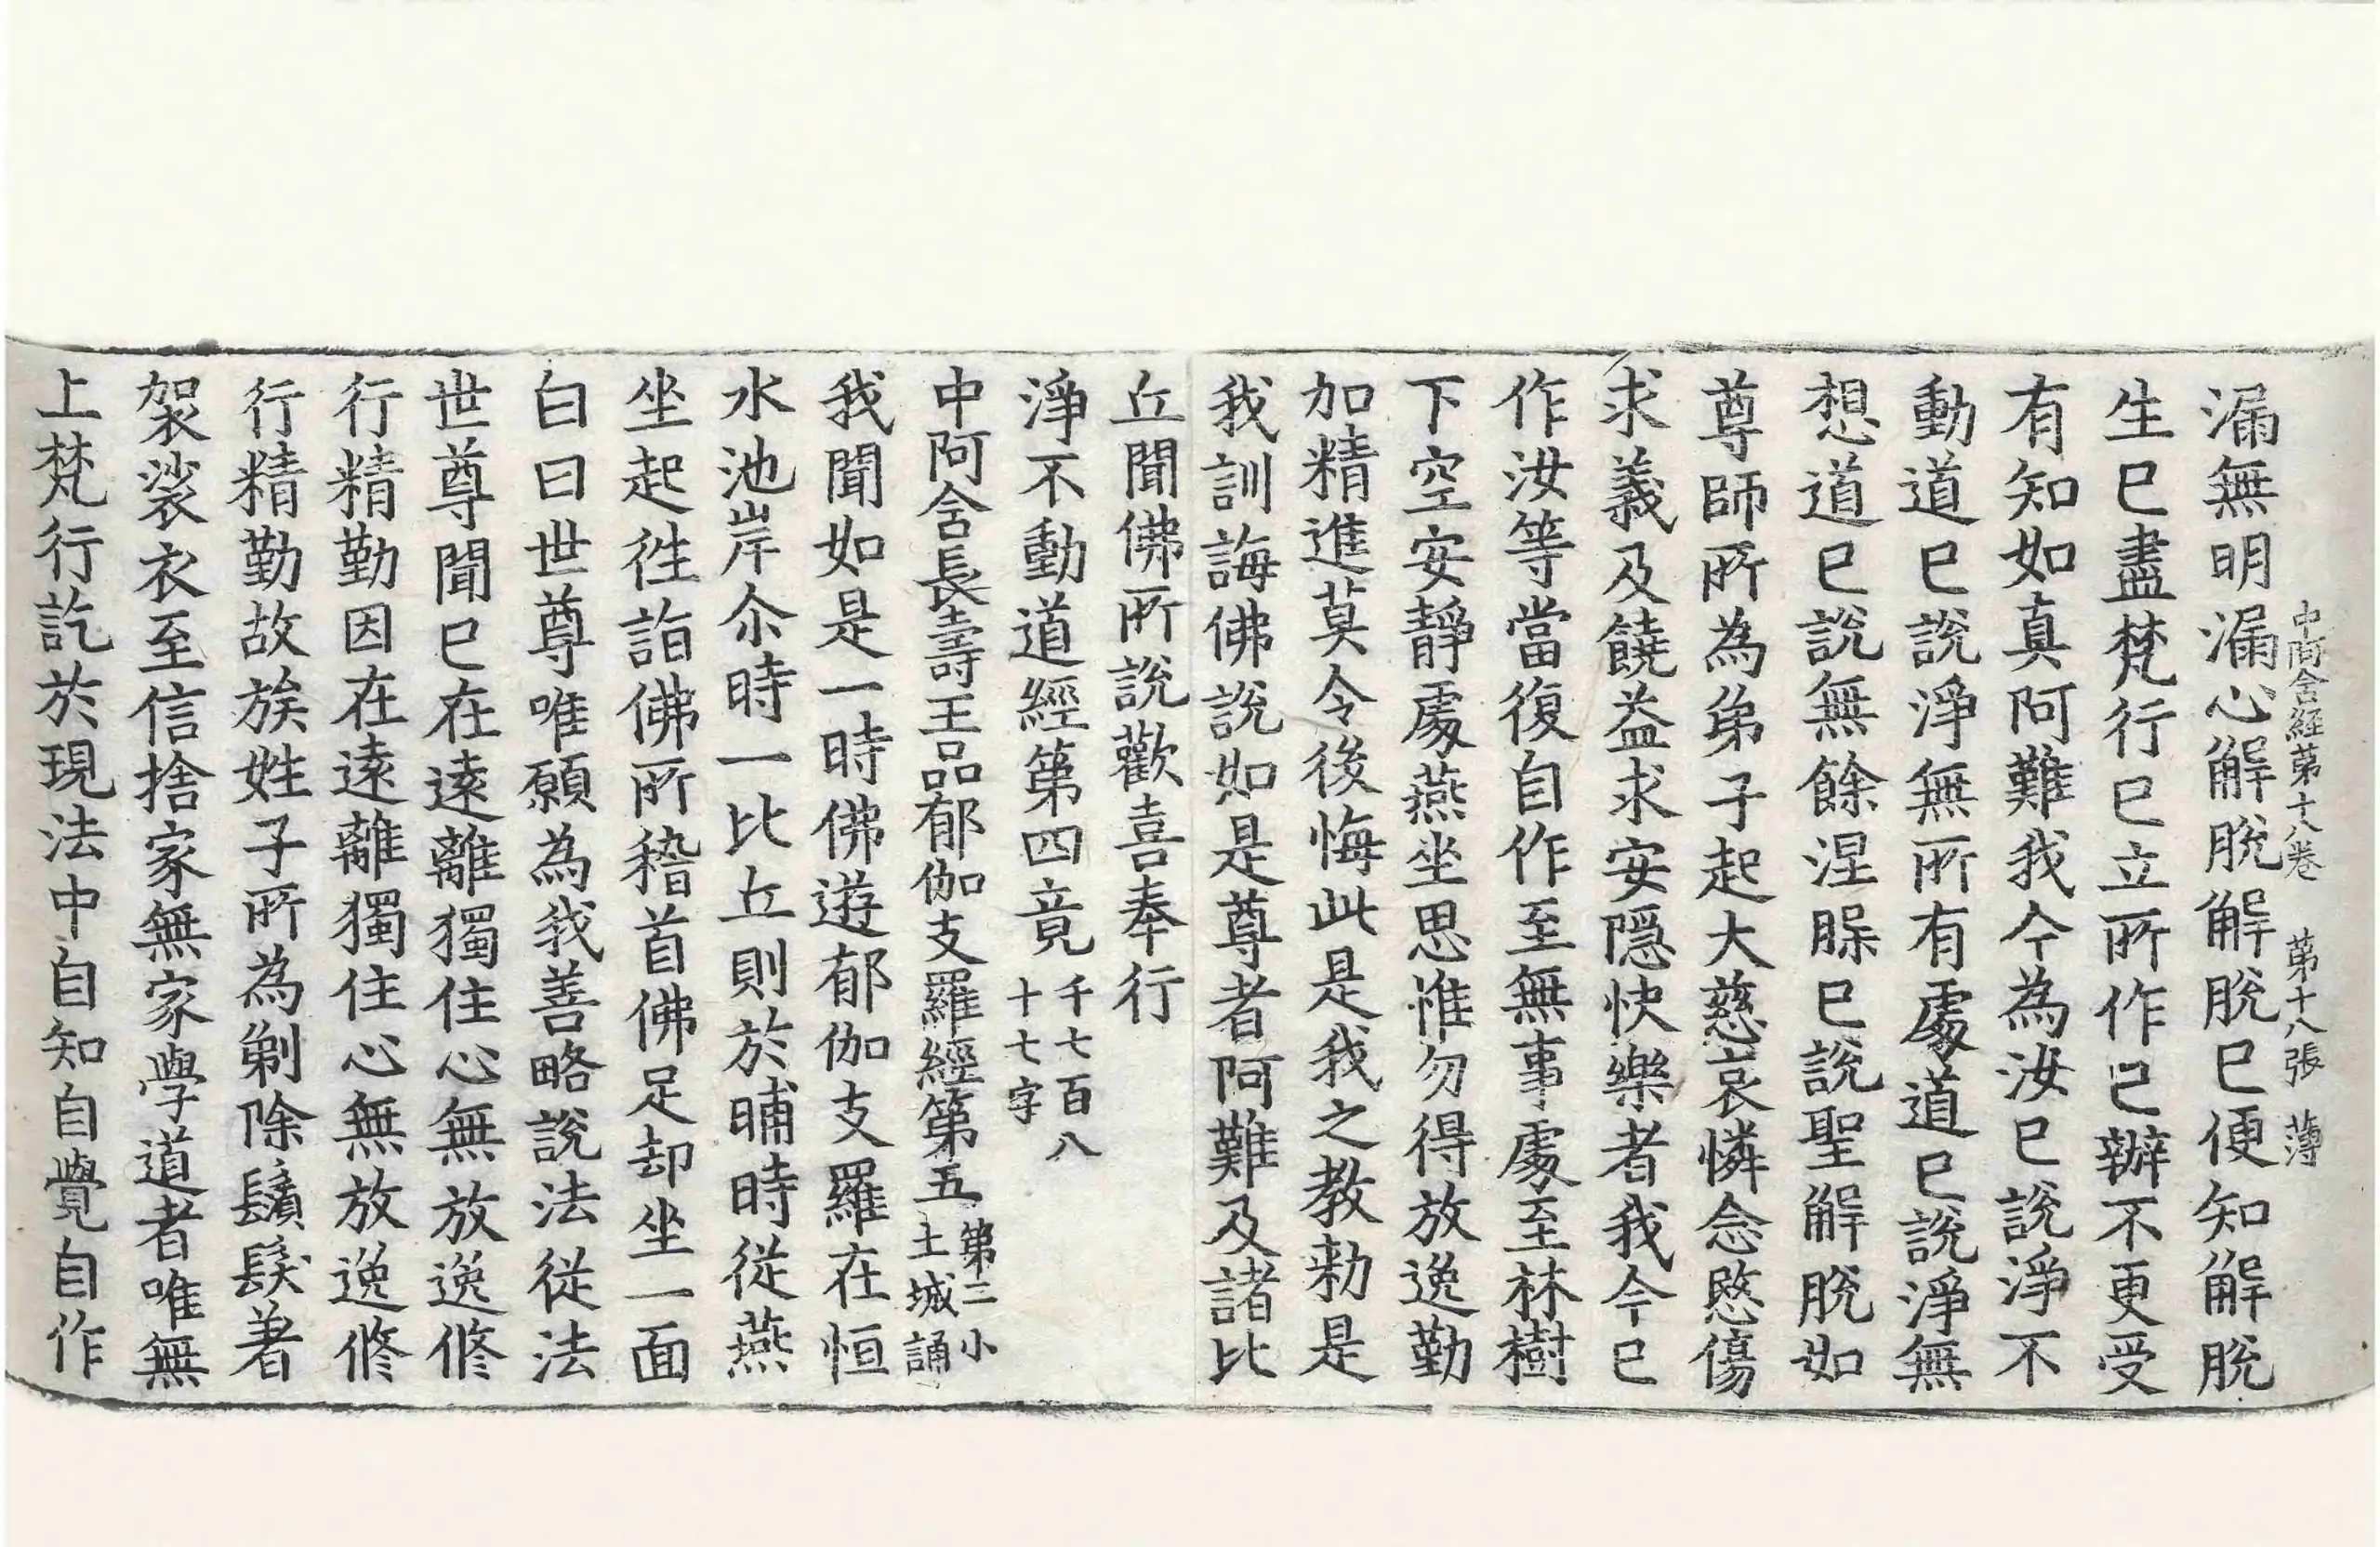 中阿含経第十八卷　第十八張　薄
漏無明漏心解脫解脫已便知解脫
生已盡梵行已立所作已辦不更受
有知如真阿難我今為汝已說淨不
動道已說淨無所有處道已說淨無
想道已說無餘涅槃已說聖解脫如
尊師所為弟子起大慈哀憐念愍傷
求義及饒益求安隱快樂者我今已
作汝等當復自作至無事處至林樹
下空安靜處燕坐思惟勿得放逸勤
加精進莫令後悔此是我之教勑是
我訓誨佛說如是尊者阿難及諸比
丘聞佛所說歡喜奉行
淨不動道經第四竟千七百八十七字
中阿含長壽王品郁伽支羅經第五第三小土城誦
我聞如是一時佛遊郁伽支羅在恒
水池岸尒時一比丘則於晡時從燕
坐起徃詣佛所稽首佛足却坐一面
白曰世尊唯願為我善略說法從法
世尊聞已在遠離獨住心無放逸修
行精勤因在遠離獨住心無放逸修
行精勤故族姓子所為剃除鬚髮著
袈裟衣至信捨家無家學道者唯無
上梵行訖於現法中自知自覺自作